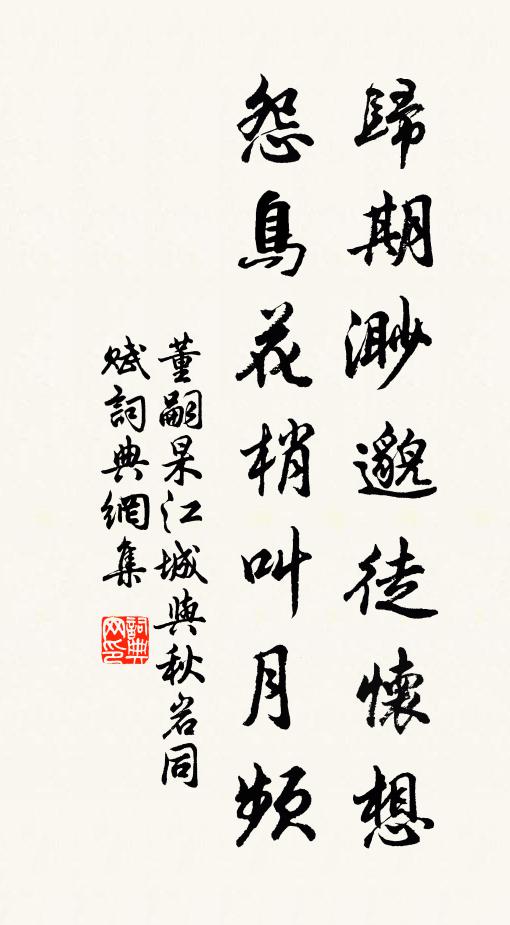 歸期渺邈徒懷想
怨鳥花梢叫月頻
董嗣杲江城與秋岩同
賦詞典網集
詞典网印